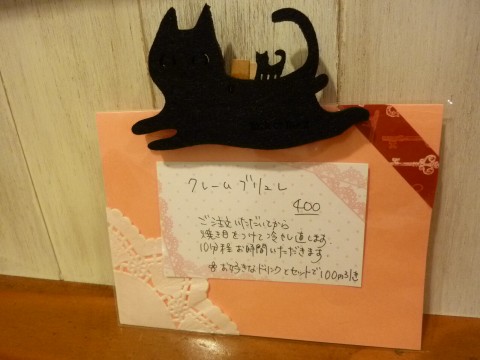 クレームブリュレ
400
ご注文いただいてから
焼き目をつけて冷やし直します
10分程お時間いただきます
※お好きなドリンクとセットで100円引き